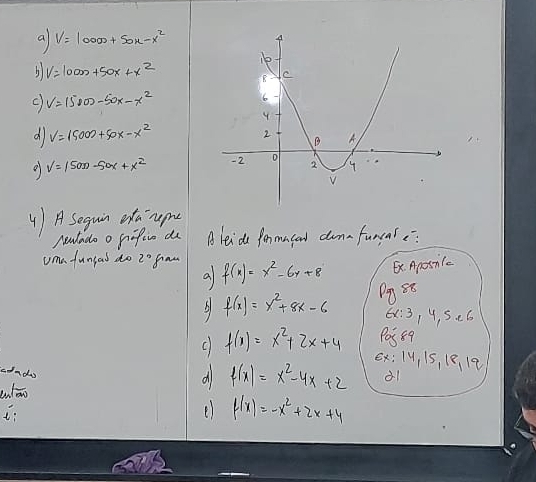 a) V = 10000 + 50x - x²
b) V = 10000 + 50x + x²
c) V = 15000 - 50x - x²
d) V = 15000 + 50x - x²
e) V = 15000 - 50x + x²
4) A seguir está repre
sentado o gráfico de
uma função do 2º grau
10
8 C
6
4
2
B A
-2 0 2 4
V
A lei de formação dessa função é:
a) f(x) = x² - 6x + 8
b) f(x) = x² + 8x - 6
c) f(x) = x² + 2x + 4
d) f(x) = x² - 4x + 2
e) f(x) = -x² + 2x + 4
Ex. Apostila
Pág 88
Ex: 3, 4, 5 e 6
Pág 89
Ex: 14, 15, 18, 19
21
é: